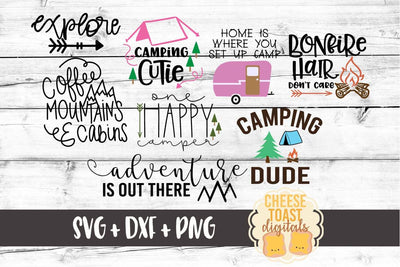 explore
CAMPING
CUTIE
HOME IS
WHERE YOU
SET UP CAMP
BONFIRE
HAIR
DON'T CARE
Coffee
MOUNTAINS
& CABINS
one
HAPPY
camper
CAMPING
DUDE
adventure
IS OUT THERE
SVG + DXF + PNG
CHEESE
TOAST
digitals